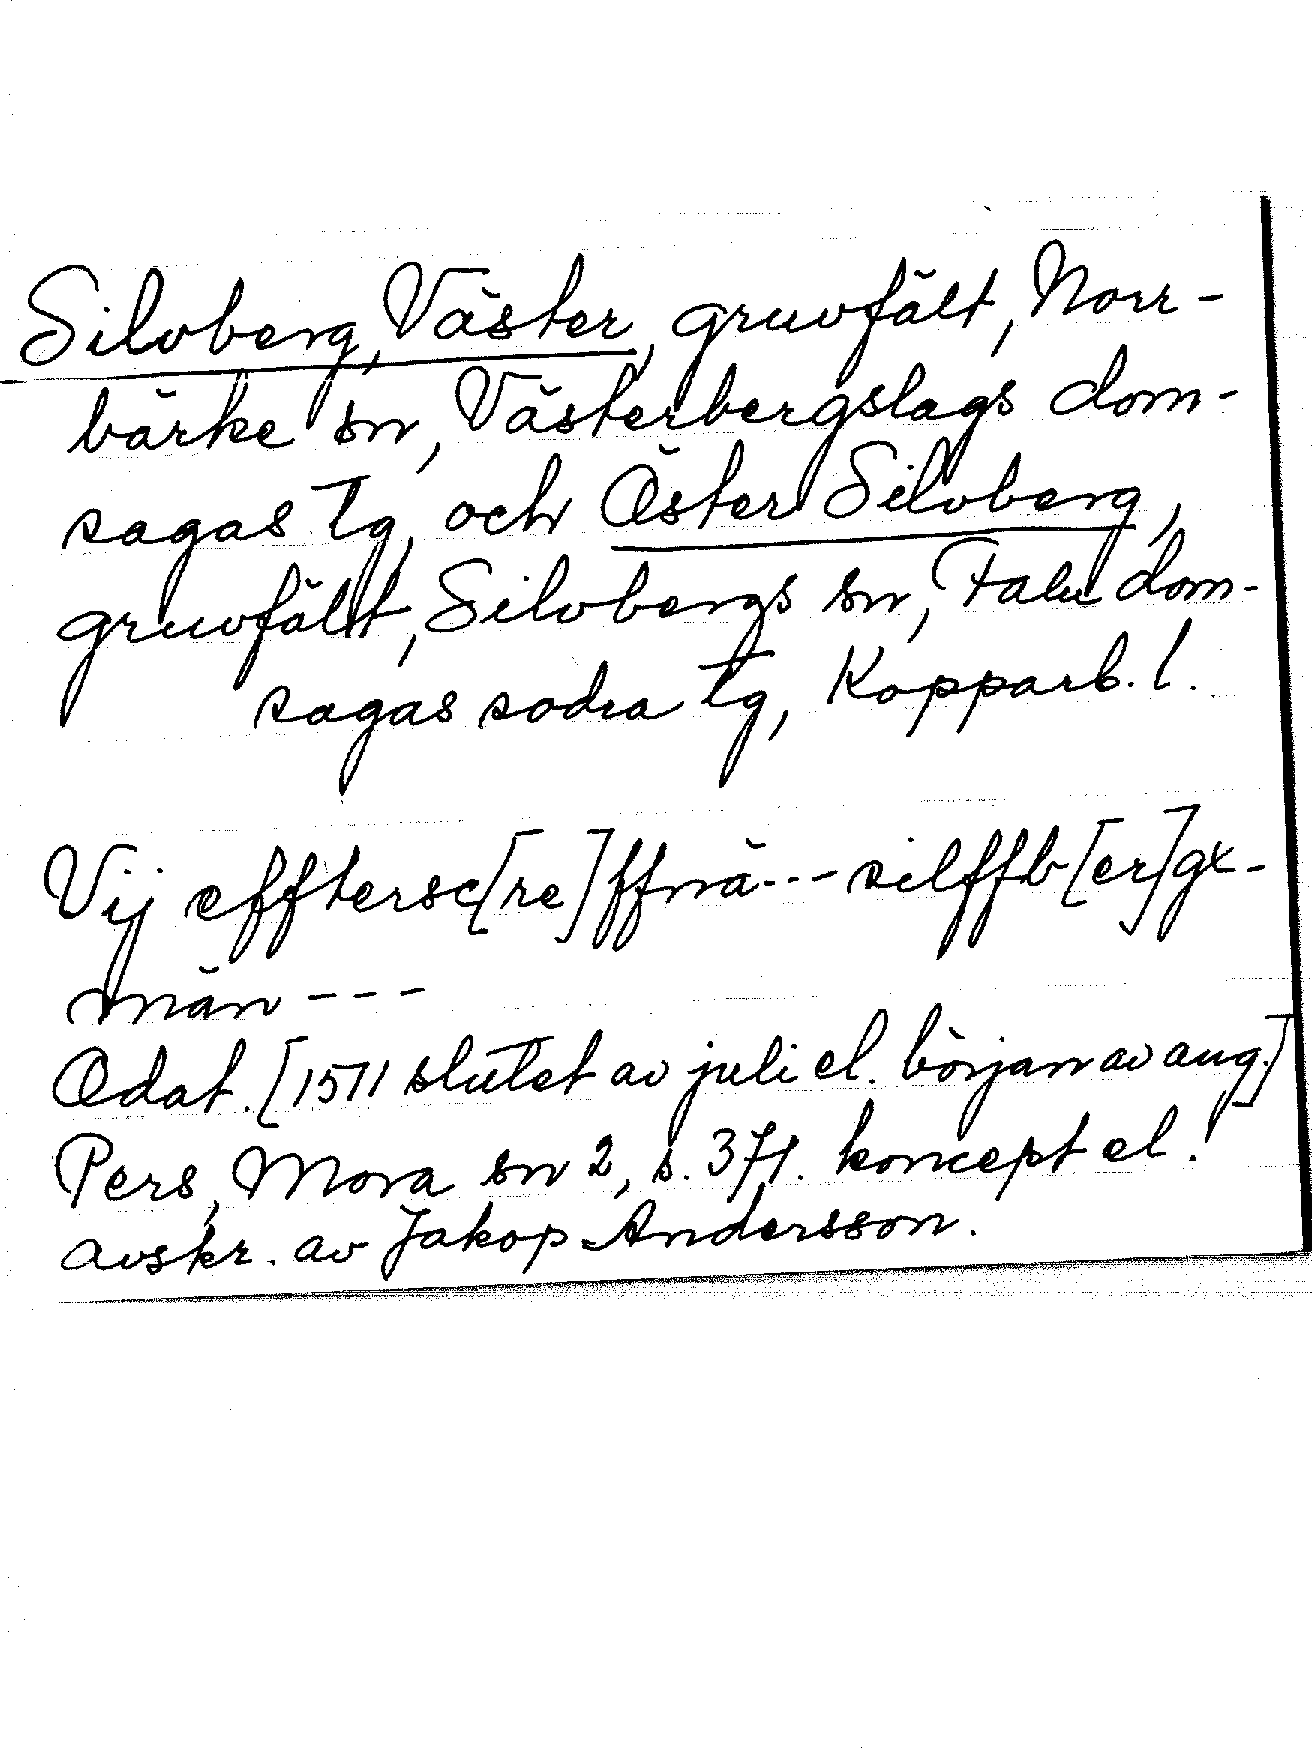 Silvberg, Väster, gruvfält, Norr-
bärke sn, Västerbergslags dom-
sagas tg, och Öster Silvberg,
gruvfält, Silvbergs sn, Falu dom-
sagas södra tg, Kopparb. l.
Vij efftersc[re]ffnä --- silffb[er]gx-
män ---
Odat. [1571 slutet av juli el. början av aug.]
Pers, Mora sn 2, s. 371. koncept el.
avskr. av Jakop Andersson.